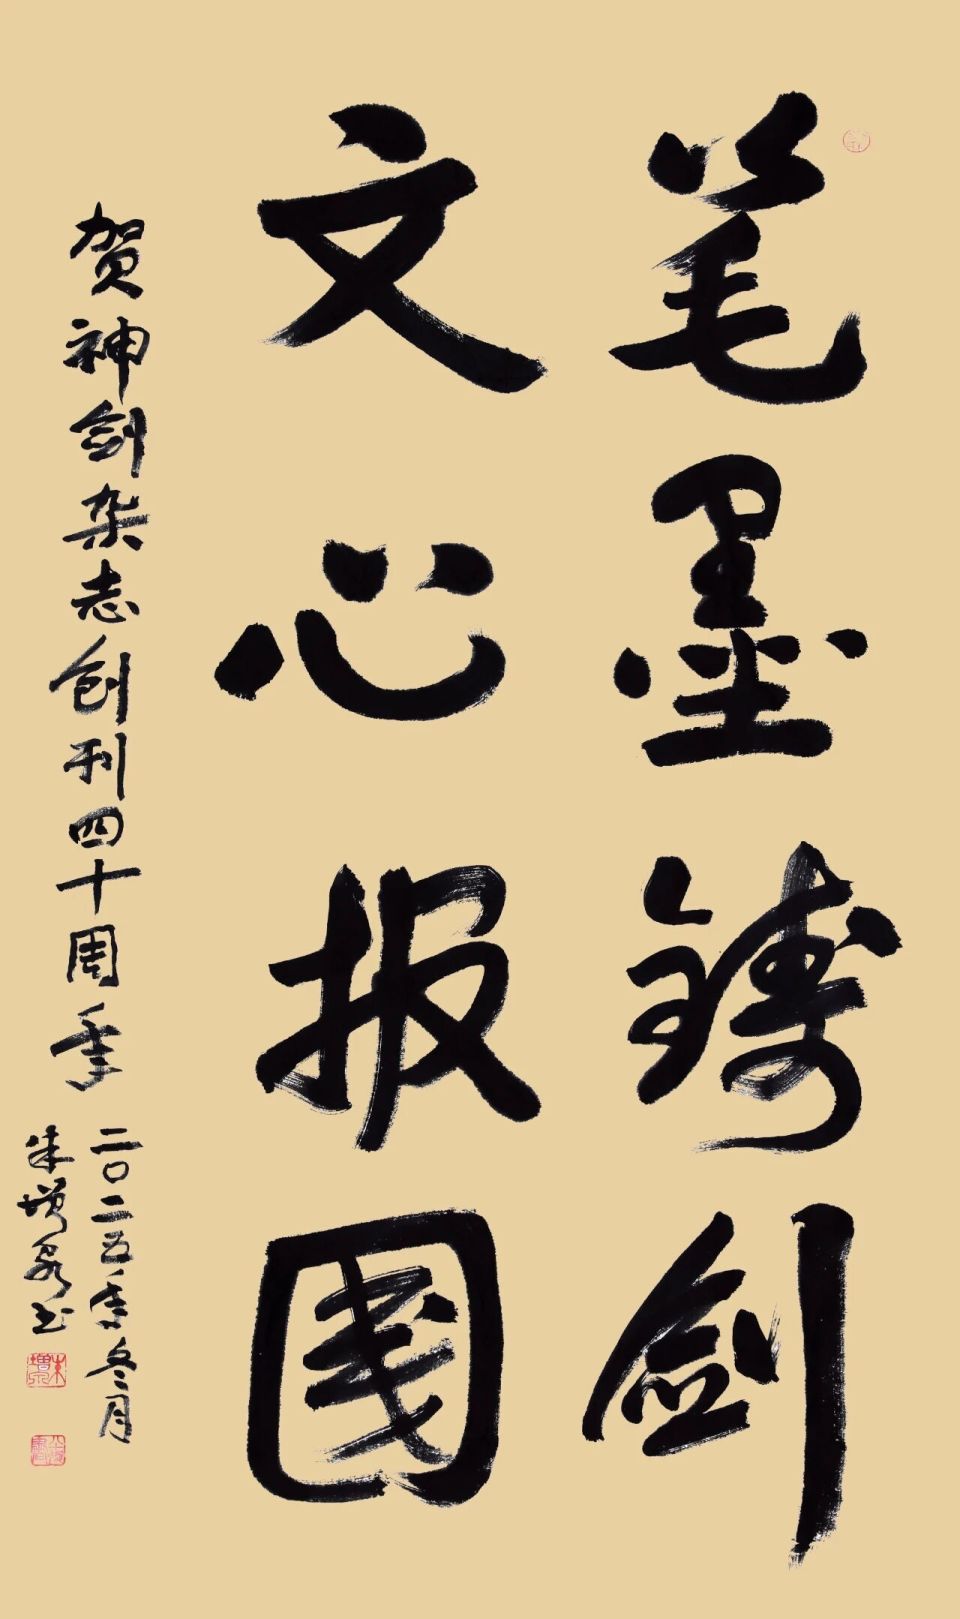 笔墨铸剑
文心报国
贺神剑杂志创刊四十周年
二〇二五年冬月
朱增泉书